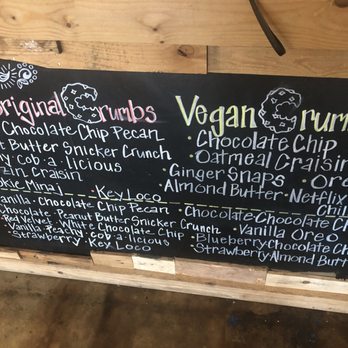 original Crumbs
Chocolate Chip Pecan
Butter Snicker Crunch
cob·a·licious
in Craisin
Minaj · Key Loco
Vanilla · Chocolate Chip Pecan
Chocolate · Peanut Butter Snicker Crunch
Red Velvet · White Chocolate Chip
Vanilla Peachy·cob·a·licious
Strawberry · Key Loco
Vegan Crum
· Chocolate Chip
· Oatmeal Craisin
· Ginger Snaps · Or
· Almond Butter · Netflix
Chil
· Chocolate · Chocolate C
· Vanilla Oreo
· Blueberry Chocolate Ch
· Strawberry Almond Butt